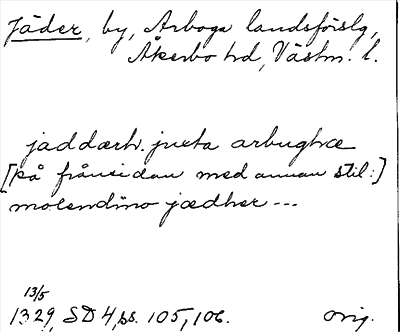 Jäder, by, Arboga landsförslg,
Åkerbo hd, Västm. l.
jaddærh. juxta arbughæ
[på frånsidan med annan stil:]
molendino jædher ---
13/5
1329, SD 4, ss. 105, 106. orig.